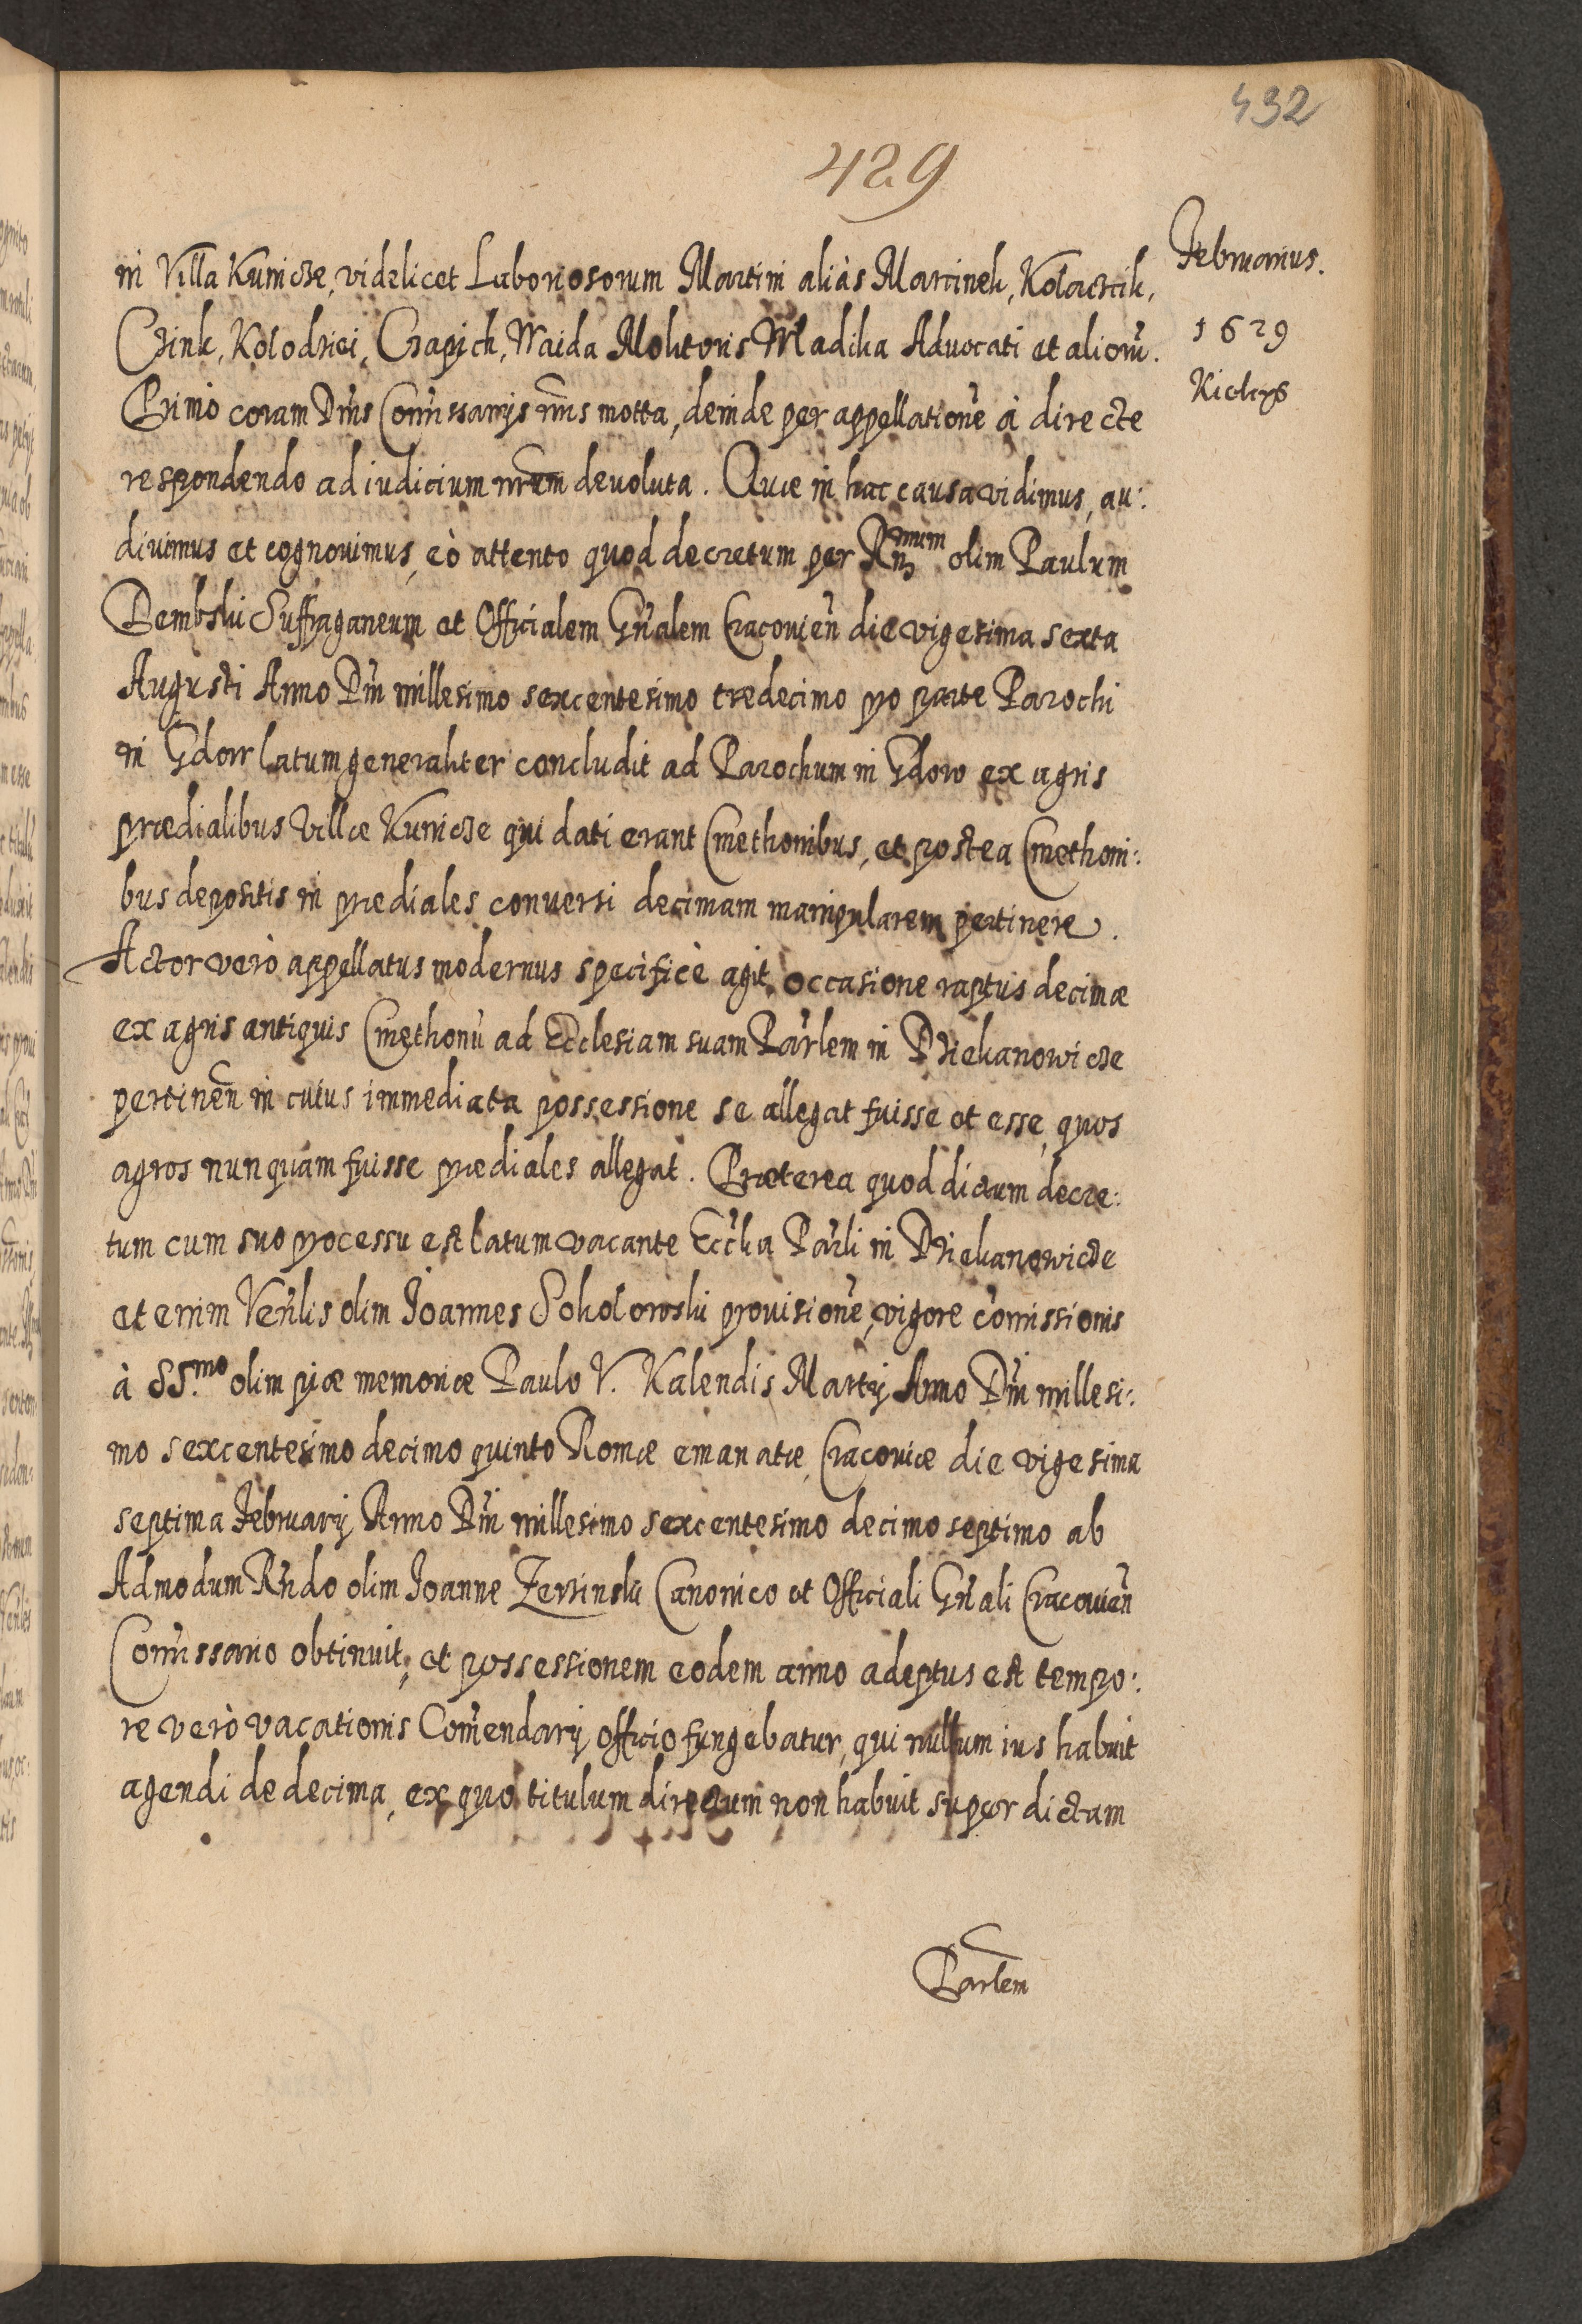 432
429
Februarius.
1629
Kielcys
in Villa Kunicze, videlicet Laboriosorum Martini aliàs Marcinek, Kołacik,
Czink, Kołodzici, Czapich, Waida Molitoris Wladika Advocati et aliorũ.
Primò coram Dñis Com̃issarijs ñris motta, deinde per appellationẽ à directe
respondendo ad iudicium ñrum devoluta. Quæ in hac causa vidimus, au:
divimus et cognovimus, eò attento quod decretum per Rñmum olim Paulum
Dembski Suffraganeum et Officialem Gñalem Cracovieñ die vigesima sexta
Augusti Anno Dñi millesimo sexcentesimo tredecimo pro parte Parochi
in Gdow latum generaliter concludit ad Parochum in Gdow ex agris
prædialibus Villæ Kunicze qui dati erant Cmethonibus, et postea Cmethoni:
bus depositis in prædiales conversi decimam manipularem pertinere.
Actor verò appellatus modernus specificè agit occasione raptus decimæ
ex agris antiquis Cmethonũ ad Ecclesiam suam Par̃lem in Dziekanowicze
pertineñ in cuius immediata possessione se allegat fuisse et esse, quos
agros nunquam fuisse prædiales allegat. Præterea quod dictum decre:
tum cum suo processu est latum vacante Eccl̃ia Par̃li in Dziekanowicze
etenim Veñlis olim Joannes Sokołowski provisionẽ, vigore com̃issionis
à SS.mo olim piæ memoriæ Paulo V. Kalendis Martij Anno Dñi millesi:
mo sexcentesimo decimo quinto Romæ emanatæ, Cracoviæ die vigesima
septima Februarij Anno Dñi millesimo sexcentesimo decimo septimo ab
Admodum Rñdo olim Joanne Zerzinski Canonico et Officiali Gñali Cracovieñ
Com̃issario obtinuit, et possessionem eodem anno adeptus est tempo:
re verò vacationis Com̃endarij officio fungebatur, qui nullum ius habuit
agendi de decima, ex quo titulum directum non habuit super dictam
Par̃lem